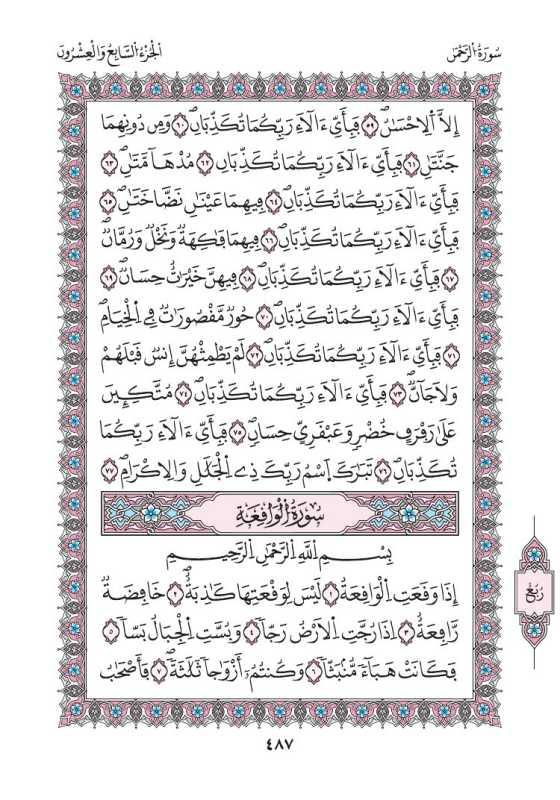 سُورَةُ الرَّحْمَٰن
الجُزءُ السَّابِعُ وَالْعِشْرُون
إِلَّا اَ۬لِاحْسَٰنُۖ ٥٩ فَبِأَيِّ ءَالَآءِ رَبِّكُمَا تُكَذِّبَٰنِۖ ٦٠ وَمِن دُونِهِمَا
جَنَّتَٰنِۖ ٦١ فَبِأَيِّ ءَالَآءِ رَبِّكُمَا تُكَذِّبَٰنِ ٦٢ مُدْهَآمَّتَٰنِۖ ٦٣
فَبِأَيِّ ءَالَآءِ رَبِّكُمَا تُكَذِّبَٰنِۖ ٦٤ فِيهِمَا عَيْنَٰنِ نَضَّاخَتَٰنِۖ ٦٥
فَبِأَيِّ ءَالَآءِ رَبِّكُمَا تُكَذِّبَٰنِۖ ٦٦ فِيهِمَا فَٰكِهَةٞ وَنَخْلٞ وَرُمَّانٞۖ
٦٧ فَبِأَيِّ ءَالَآءِ رَبِّكُمَا تُكَذِّبَٰنِۖ ٦٨ فِيهِنَّ خَيْرَٰتٌ حِسَانٞۖ ٦٩
فَبِأَيِّ ءَالَآءِ رَبِّكُمَا تُكَذِّبَٰنِۖ ٧٠ حُورٞ مَّقْصُورَٰتٞ فِي اِ۬لْخِيَامِۖ
٧١ فَبِأَيِّ ءَالَآءِ رَبِّكُمَا تُكَذِّبَٰنِۖ ٧٢ لَمْ يَطْمِثْهُنَّ إِنسٞ قَبْلَهُمْ
وَلَا جَآنّٞۖ ٧٣ فَبِأَيِّ ءَالَآءِ رَبِّكُمَا تُكَذِّبَٰنِۖ ٧٤ مُتَّكِـِٕينَ
عَلَىٰ رَفْرَفٍ خُضْرٖ وَعَبْقَرِيٍّ حِسَانٖۖ ٧٥ فَبِأَيِّ ءَالَآءِ رَبِّكُمَا
تُكَذِّبَٰنِۖ ٧٦ تَبَٰرَكَ اَ۪سْمُ رَبِّكَ ذِي اِ۬لْجَلَٰلِ وَالِاكْرَامِۖ ٧٧
سُورَةُ الْوَاقِعَةِ
بِسْمِ اِ۬للَّهِ اِ۬لرَّحْمَٰنِ اِ۬لرَّحِيمِ
إِذَا وَقَعَتِ اِ۬لْوَاقِعَةُ ١ لَيْسَ لِوَقْعَتِهَا كَاذِبَةٌۖ ٢ خَافِضَةٞ
رَّافِعَةٌۖ ٣ اِذَا رُجَّتِ اِ۬لَارْضُ رَجّاٗ ٤ وَبُسَّتِ اِ۬لْجِبَالُ بَسّاٗ ٥
فَكَانَتْ هَبَآءٗ مُّنۢبَثّاٗ ٦ وَكُنتُمُۥٓ أَزْوَٰجاٗ ثَلَٰثَةٗۖ ٧ فَأَصْحَٰبُ
رُبُع
٤٨٧